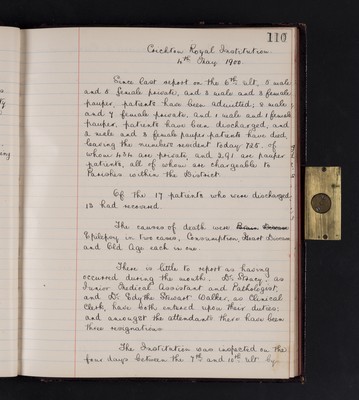 110
Crichton Royal Institution.
4th May 1900.
Since last report on the 6th ult, 5 male
and 5 female private, and 3 male and 3 female
pauper, patients have been admitted; 8 male
and 7 female private, and 1 male and 1 female
pauper, patients have been discharged, and
2 male and 3 female pauper patients have died,
leaving the numbers resident today 725. of
whom 434 are private, and 291 are pauper
patients, all of whom are chargeable to
Parishes within the District.
Of the 17 patients who were discharged,
13 had recovered.
The causes of death were Brain Disease
Epilepsy in two cases, Consumption, Heart Disease
and Old Age each in one.
There is little to report as having
occurred during the month. Dr. , as
Junior Medical Assistant and Pathologist,
and Dr. Edythe Stewart Walker, as Clinical
Clerk, have both entered upon their duties;
and amongst the attendants there have been
three resignations.
The Institution was inspected on the
four days between the 7th and 10th ult by